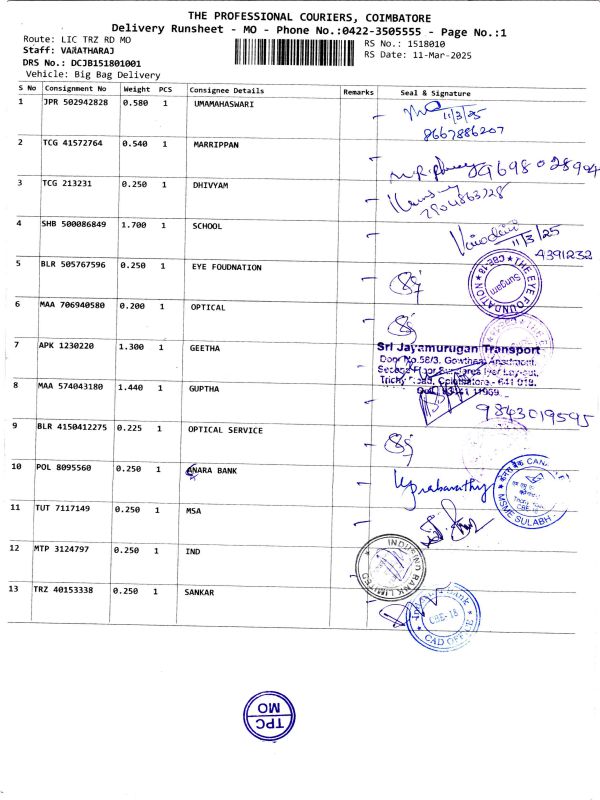 THE PROFESSIONAL COURIERS, COIMBATORE
Delivery Runsheet - MO - Phone No.:0422-3505555 - Page No.:1
Route: LIC TRZ RD MO
RS No.: 1518010
Staff: VARATHARAJ
RS Date: 11-Mar-2025
DRS No.: DCJB151801001
Vehicle: Big Bag Delivery
S No Consignment No Weight PCS Consignee Details Remarks Seal & Signature
1 JPR 502942828 0.580 1 UMAMAHASWARI
11/3/25
8667886207
2 TCG 41572764 0.540 1 MARRIPPAN
3 TCG 213231 0.250 1 DHIVYAM
4 SHB 500086849 1.700 1 SCHOOL
11/3/25
4391232
5 BLR 505767596 0.250 1 EYE FOUDNATION
THE EYE FOUNDATION
CBE-18
Sungam
6 MAA 706940580 0.200 1 OPTICAL
7 APK 1230220 1.300 1 GEETHA
Sri Jayamurugan Transport
Door No.58/3, Gowtham Apartment,
8 MAA 574043180 1.440 1 GUPTHA
9843019595
9 BLR 4150412275 0.225 1 OPTICAL SERVICE
10 POL 8095560 0.250 1 ANARA BANK
MSME SULABH
11 TUT 7117149 0.250 1 MSA
12 MTP 3124797 0.250 1 IND
INDUSIND BANK LIMITED
13 TRZ 40153338 0.250 1 SANKAR
CBE-18
CAD OFFICE
TPC
MO